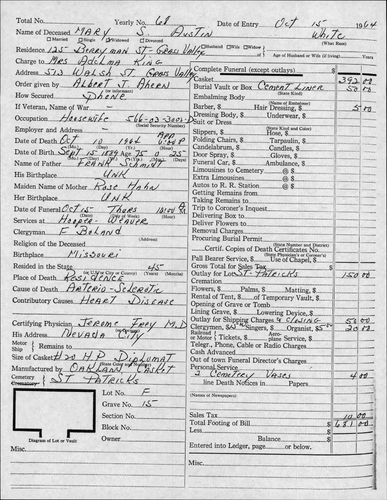 Total No.
Yearly No. 68
Date of Entry Oct 15 1964
Name of Deceased MARY S. AUSTIN White
Married Single Widowed Divorced (What Race)
Residence 125 Berryman St - Grass Valley
Husband or Wife Widow
Age of Husband or Wife (if living)
Charge to Mrs Adelma King
Address 513 Walsh St. Grass Valley
Order Given by Albert J. Ahern
How Secured Phone
If Veteran, Name of War -
Occupation Housewife 566-03-3005-D
(Social Security Number)
Employer and Address -
Date of Death Oct 10 1964 4:00 P
Date of Birth Sept 15 1889 Age 75 0 25
Name of Father FRANK Schmidt
His Birthplace UNK
Maiden Name of Mother Rose Hahn
Her Birthplace UNK
Date of Funeral Oct 15 Thurs 10:00 A
(Date) (Day) (Hour)
Services at Hooper-Weaver
Clergyman F Boland
(Address)
Religion of the Deceased
Birthplace Missouri
Resided in the State 45
(or U.S. or City or County) (Years) (Months)
Place of Death Residence
Cause of Death Arterio-Sclerotic
Contributory Causes Heart Disease
Certifying Physician Jerome Frey M.D.
His Address Nevada City
Motor Ship Remains to
Size of Casket H20 H.P. Diplomat
(State Lining and Metal)
Manufactured by OAKLAND Casket
Cemetery Crematory ST PATRICKS
Lot No. F
Grave No. 15
Section No.
Block No.
Owner
Diagram of Lot or Vault
Misc.
Complete Funeral (except outlays) $
Casket $ 392.00
Burial Vault or Box Cement Liner 50.00
(State Kind)
Embalming Body
(Name of Embalmer)
Barber, $ Hair Dressing, $ 5.00
Dressing Body, $ Underwear, $
Suit or Dress
(State Kind and Color)
Slippers, $ Hose, $
Folding Chairs, $ Tarpaulin, $
Candelabrum, $ Candles, $
Door Spray, $ Gloves, $
Funeral Car, $ Ambulance, $
Limousines to Cemetery @ $
Extra Limousines @ $
Autos to R. R. Station @ $
Getting Remains from
Taking Remains to
Trip to Coroner's Inquest
Delivering Box to
Deliver Flowers to
Removal Charges
Procuring Burial Permit
(State Number and District)
Certif. Copies of Death Certificates No.
(State Physician's or Coroner's)
Pall Bearer Service, $ Use of Chapel, $
Gross Total for Sales Tax $
Outlay for Lot ST. Patricks $ 150.00
Cremation
Flowers, $ Palms, $ Matting, $
Rental of Tent, $ of Temporary Vault, $
Opening of Grave or Tomb
Lining Grave, $ Lowering Device, $
Outlay for Shipping Charges Closing 50.00
Clergyman, $ Singers, $ Organist, $5.00 20.00
Railroad or Motor Tickets, $ Aeroplane Service, $
Telgr., Phone, Cable or Radio Charges
Cash Advanced
Out of town Funeral Director's Charges
Personal Service
2 Cemetery Vases 4.00
line Death Notices in Papers
(Names of Newspapers)
Sales Tax 10.00
Total Footing of Bill $ 681.00
Less $
Balance $
Entered into Ledger, page or below.
Misc.